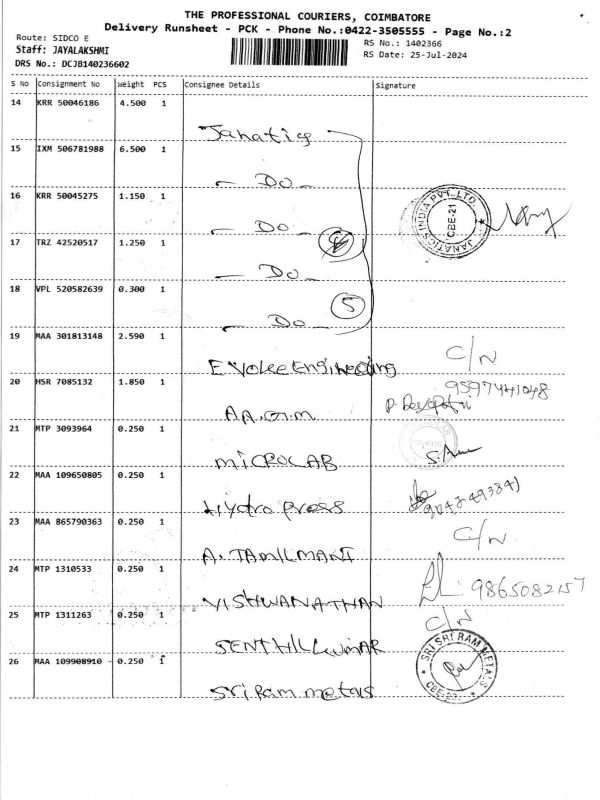 THE PROFESSIONAL COURIERS, COIMBATORE
Delivery Runsheet - PCK - Phone No.:0422-3505555 - Page No.:2
Route: SIDCO E
RS No.: 1402366
Staff: JAYALAKSHMI
RS Date: 25-Jul-2024
DRS No.: DCJB140236602
S No Consignment No Weight PCS Consignee Details Signature
14 KRR 50046186 4.500 1 Janatics
15 IXM 506781988 6.500 1 - Do -
16 KRR 50045275 1.150 1 - Do - JANATICS INDIA PVT. LTD. CBE-21
17 TRZ 42520517 1.250 1 - Do -
18 VPL 520582639 0.300 1 - Do - 5
19 MAA 301813148 2.590 1 Evolve Engineering C/N
20 HSR 7085132 1.850 1 AA.G.M 9597441048
21 MTP 3093964 0.250 1 MICROLAB
22 MAA 109650805 0.250 1 Hydro press
23 MAA 865790363 0.250 1 A. TAMILMANI C/N
24 MTP 1310533 0.250 1 VISHWANATHAN 9865082157
25 MTP 1311263 0.250 1 SENTHILKUMAR C/N
26 MAA 109908910 0.250 1 Sri Ram metals SRI SRI RAM METALS CBE-21